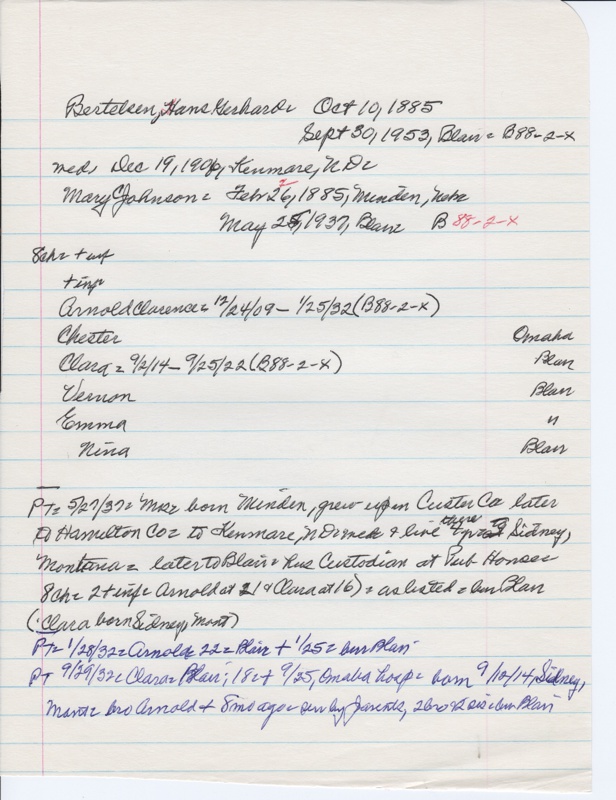 Bertelsen, Hans Gerhard = Oct 10, 1885
Sept 30, 1953, Blair = B88-2-X
med, Dec 19, 1906, Kenmare, ND =
Mary C Johnson = Feb 26, 1885, Minden, Nebr
2
May 25, 1937, Blair B 88-2-X
8ch = + inf
+ inf
Arnold Clarence = 12/24/09 - 1/25/32 (B88-2-X)
Chester Omaha
Clara = 9/2/14 - 9/25/22 (B88-2-X) Blair
Vernon Blair
Emma "
Nina Blair
PT = 5/27/37 = Mrs = born Minden, grew up in Custer Co later
to Hamilton Co = to Kenmare, ND = & live there to Sidney,
Montana = later to Blair = hus Custodian at Pub House =
8ch = 2 + inf = Arnold at 21 & Clara at 16) = as listed = bur Blair
(Clara born Sidney, Mont)
PT = 1/28/32 = Arnold = 22 = Blair + 1/25 = bur Blair
PT 9/29/32 = Clara = Blair, 18 = + 9/25, Omaha hosp = born 9/10/14, Sidney,
Mont = bro Arnold + 8 mo ago = sur by parents, 2 bro & 2 sis = bur Blair